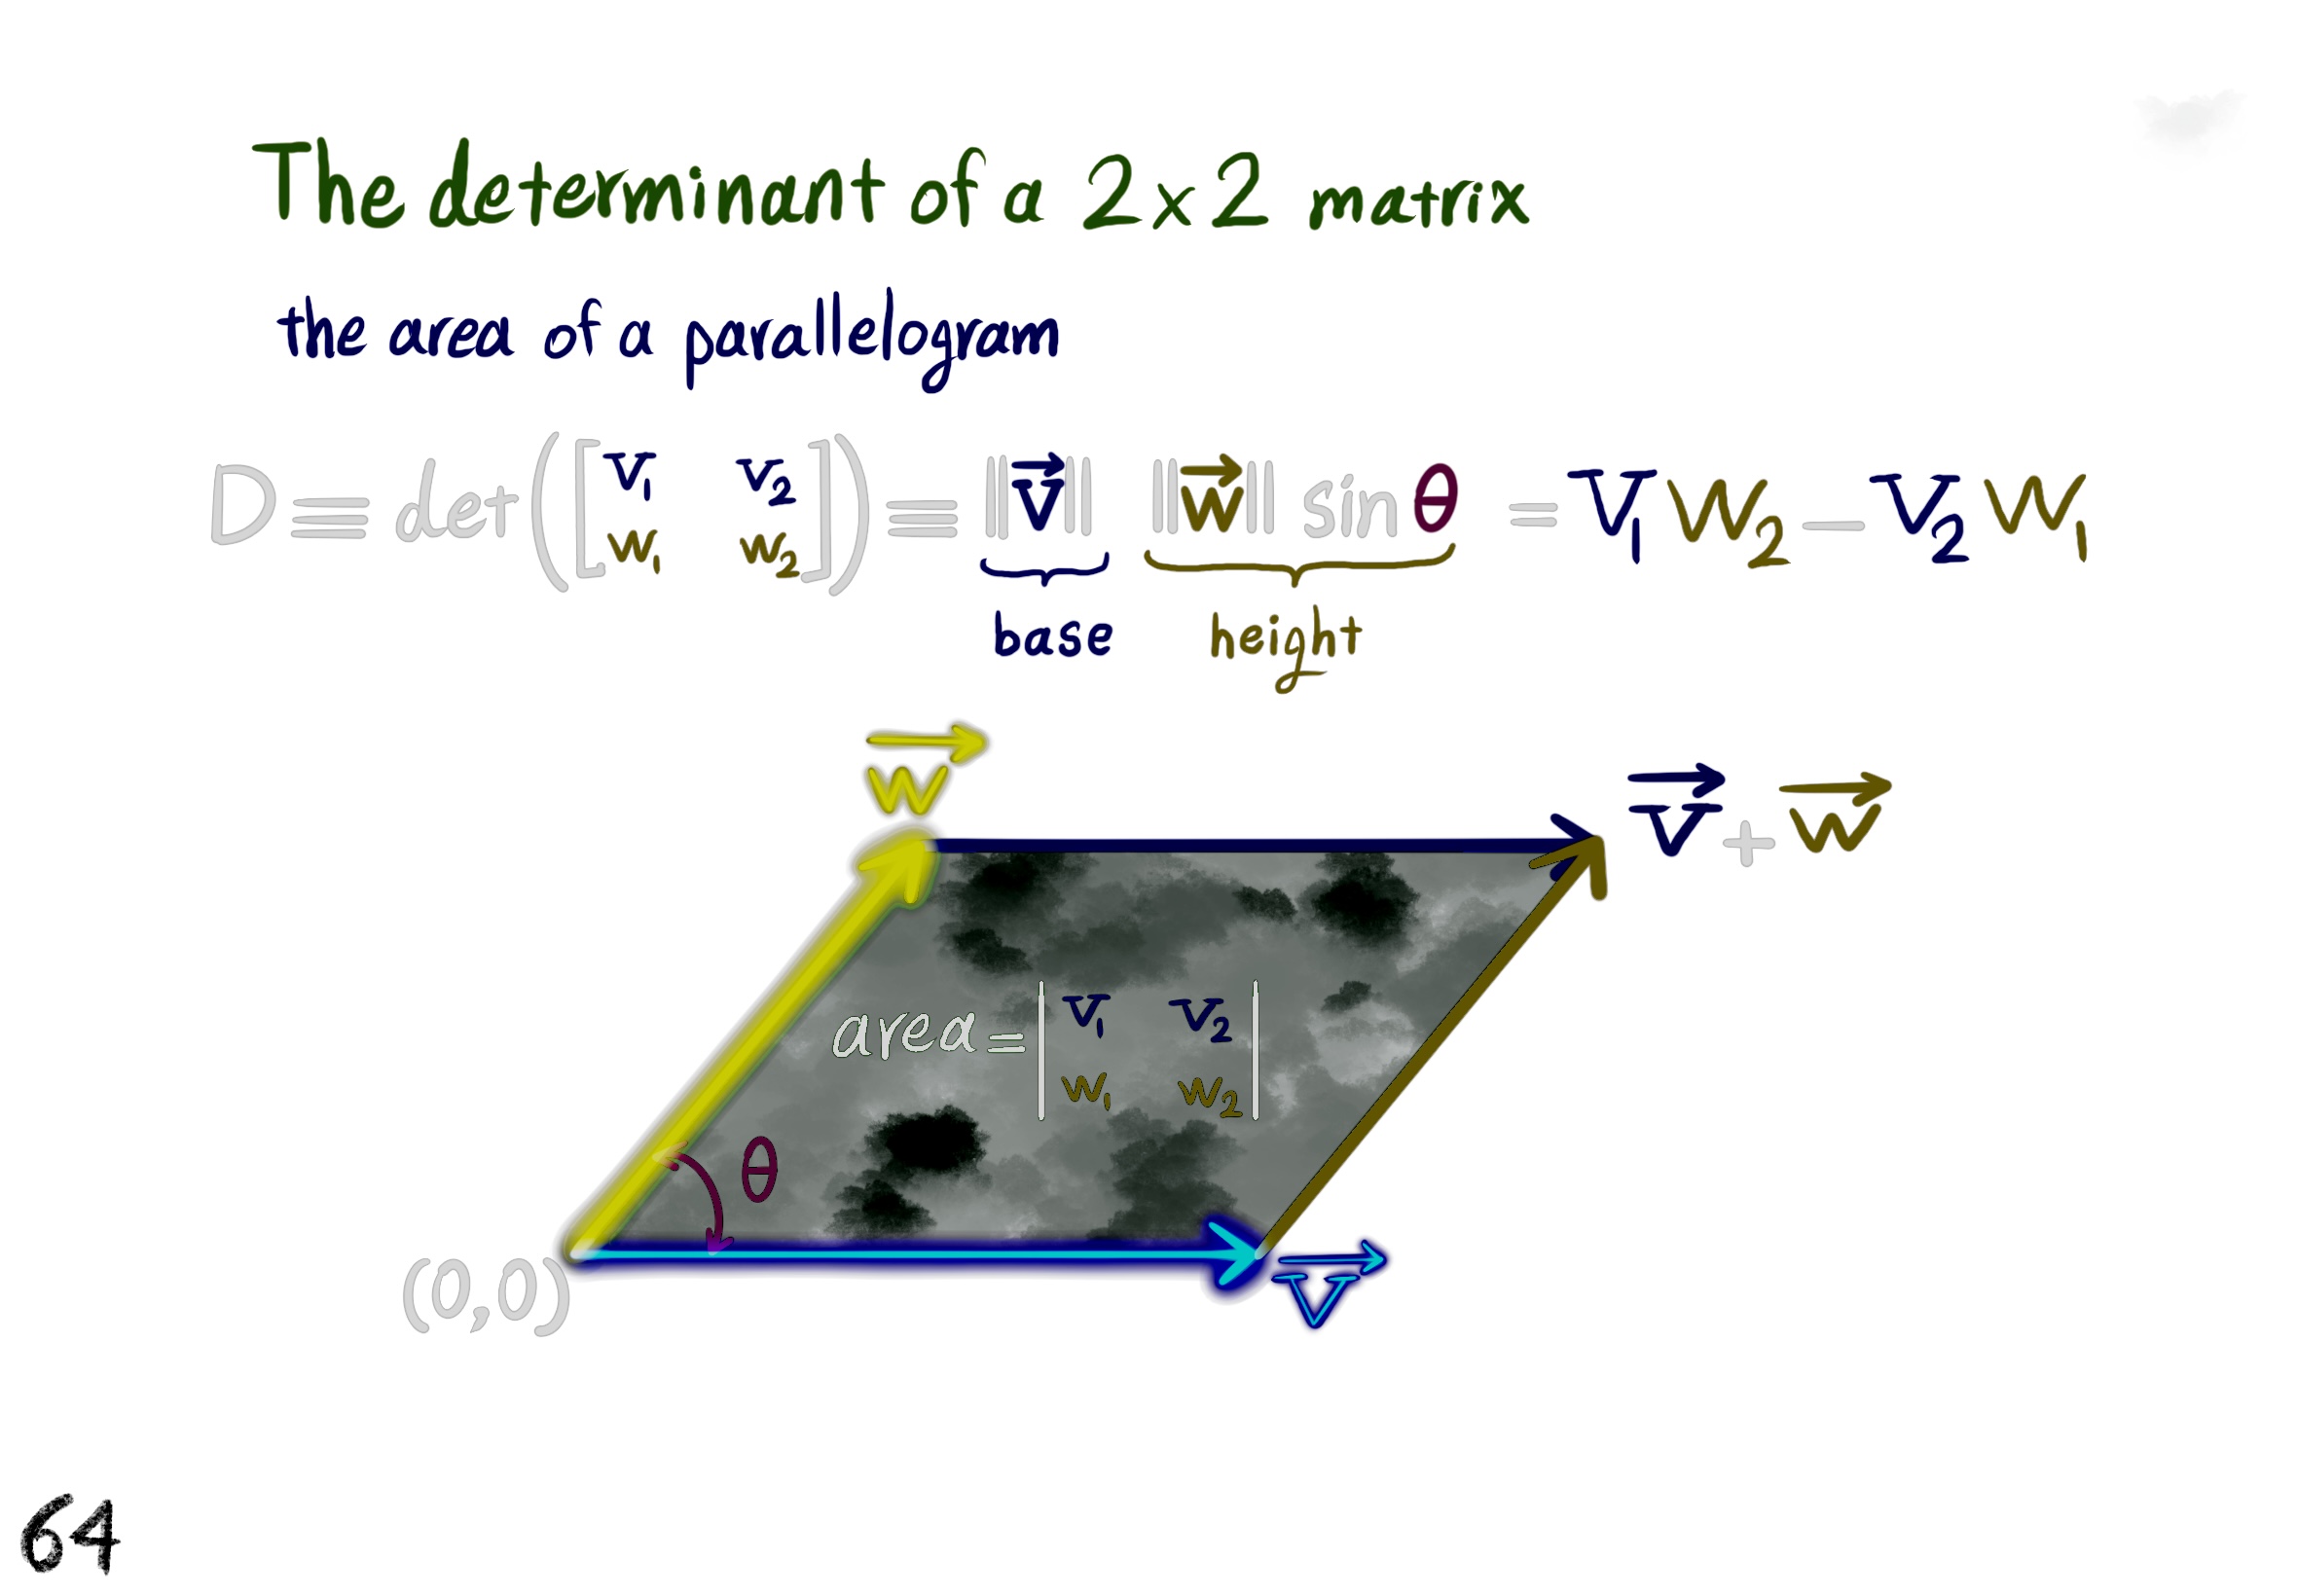 The determinant of a 2×2 matrix
the area of a parallelogram
D ≡ det([v₁ v₂ w₁ w₂]) ≡ ‖v⃗‖ ‖w⃗‖ sin θ = v₁w₂ − v₂w₁
base height
w⃗
v⃗ + w⃗
area = |v₁ v₂ w₁ w₂|
θ
(0,0)
v⃗
64